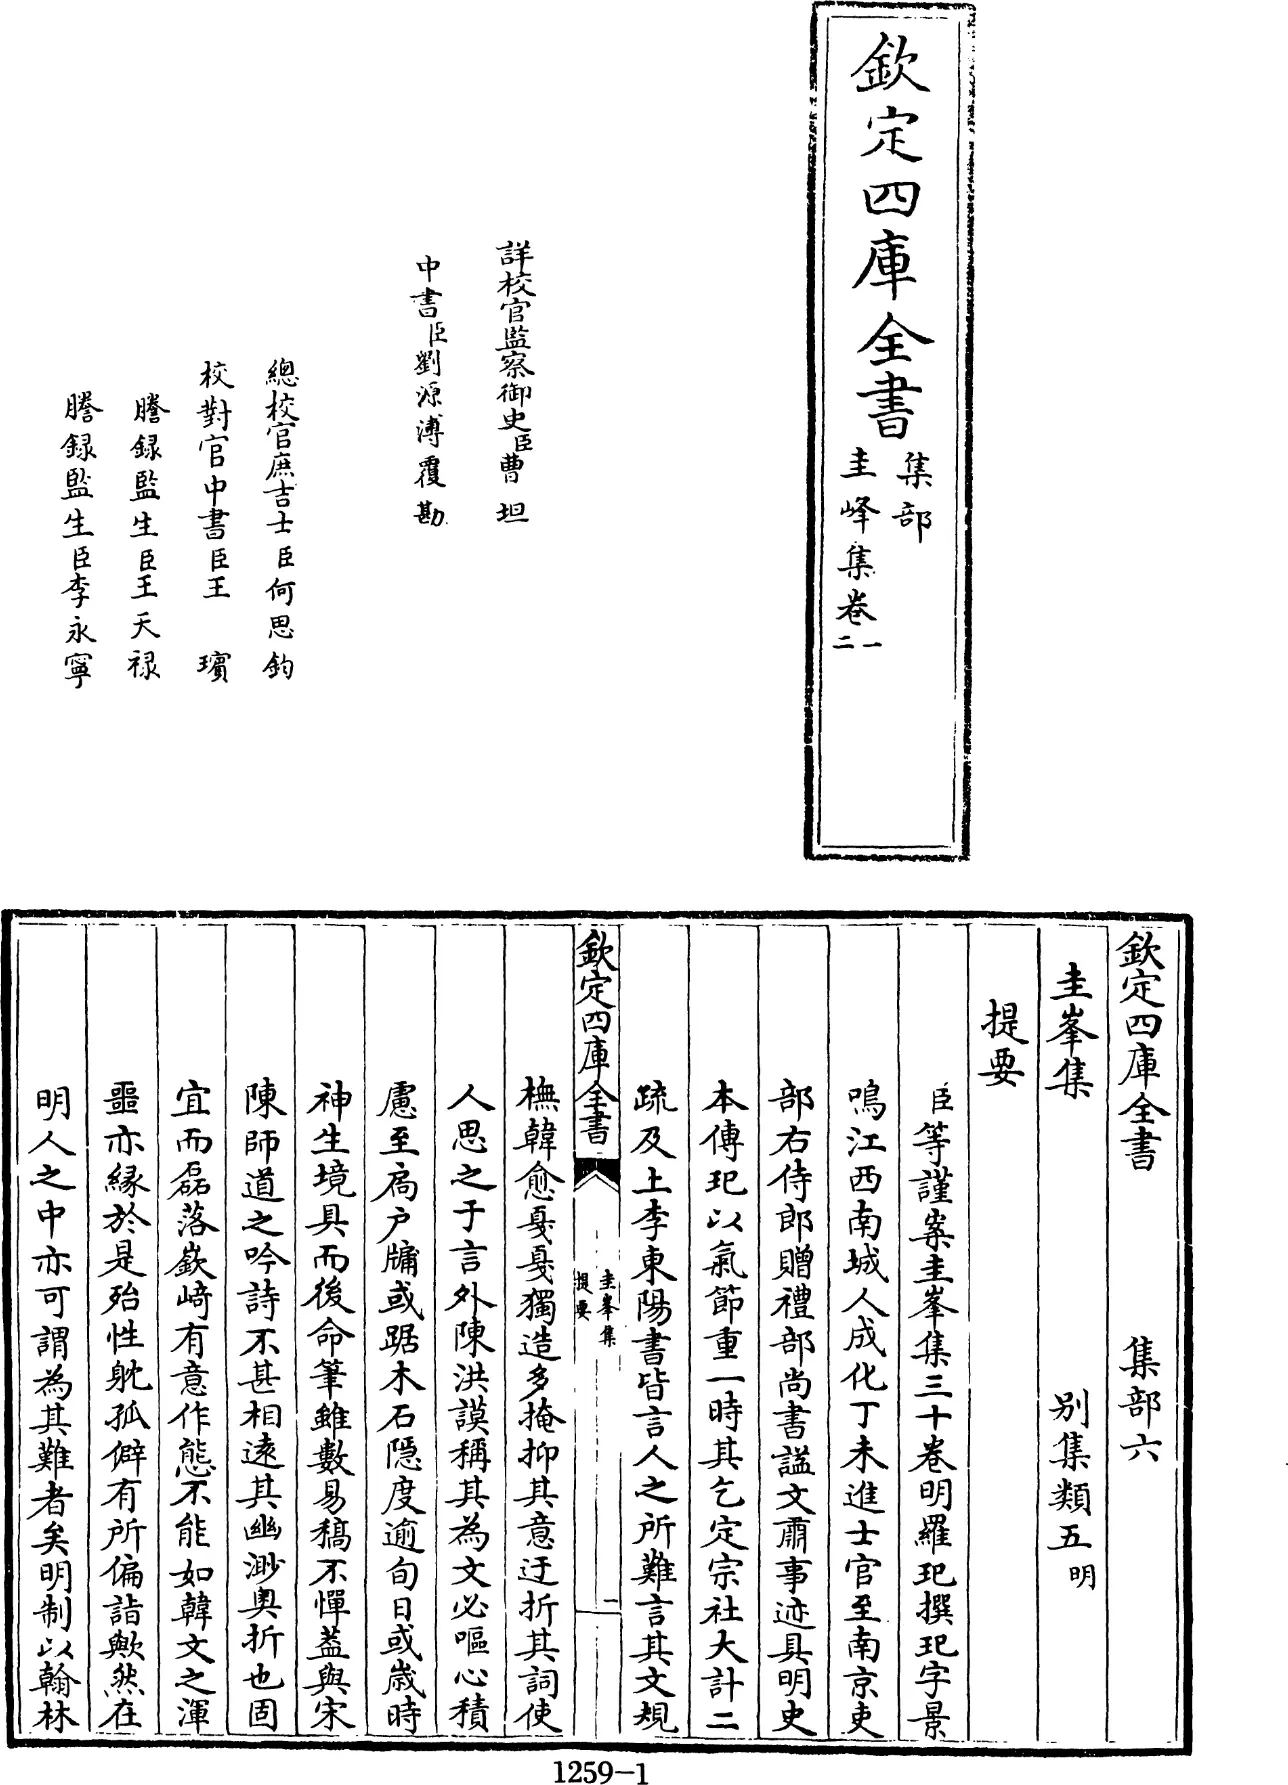 欽定四庫全書
集部
圭峰集卷一
二
詳校官監察御史臣曹坦
中書臣劉源溥覆勘
總校官庶吉士臣何思鈞
校對官中書臣王璸
謄録監生臣王天禄
謄録監生臣李永寧
欽定四庫全書 集部六
圭峯集 别集類五明
提要
臣等謹案圭峯集三十卷明羅玘撰玘字景
鳴江西南城人成化丁未進士官至南京吏
部右侍郎贈禮部尚書謚文肅事迹具明史
本傳玘以氣節重一時其乞定宗社大計二
疏及上李東陽書皆言人之所難言其文規
欽定四庫全書
圭峯集
提要
一
橅韓愈戛戛獨造多掩抑其意迂折其詞使
人思之于言外陳洪謨稱其為文必嘔心積
慮至扃户牖或踞木石隱度逾旬日或歲時
神生境具而後命筆雖數易稿不憚葢與宋
陳師道之吟詩不甚相遠其幽渺奥折也固
宜而磊落嶔﨑有意作態不能如韓文之渾
噩亦緣於是殆性躭孤僻有所偏詣歟然在
明人之中亦可謂為其難者矣明制以翰林
1259—1